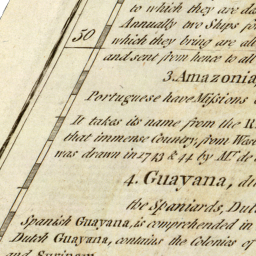 to which they are da
Annually two Ships fo
50
which they bring are all
and sent from hence to all
3. Amazonia
Portuguese have Missions
It takes its name from the R
that immense Country, from West
was drawn in 1743 & 44 by Mr. de
4. Guayana, di
the Spaniards, Dut
Spanish Guayana, is comprehended in
Dutch Guayana, contains the Colonies of
and Surinam